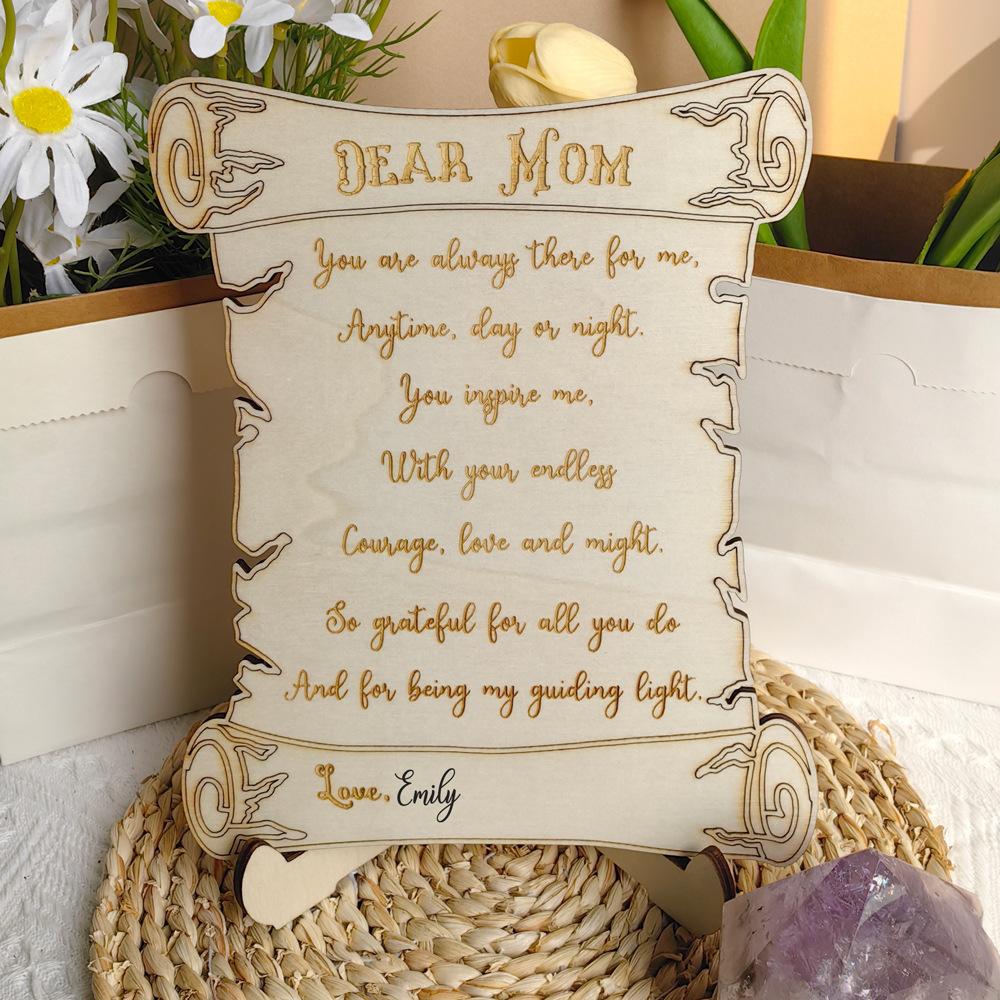 Dear Mom
You are always there for me,
Anytime, day or night.
You inspire me,
With your endless
Courage, love and might.
So grateful for all you do
And for being my guiding light.
Love, Emily